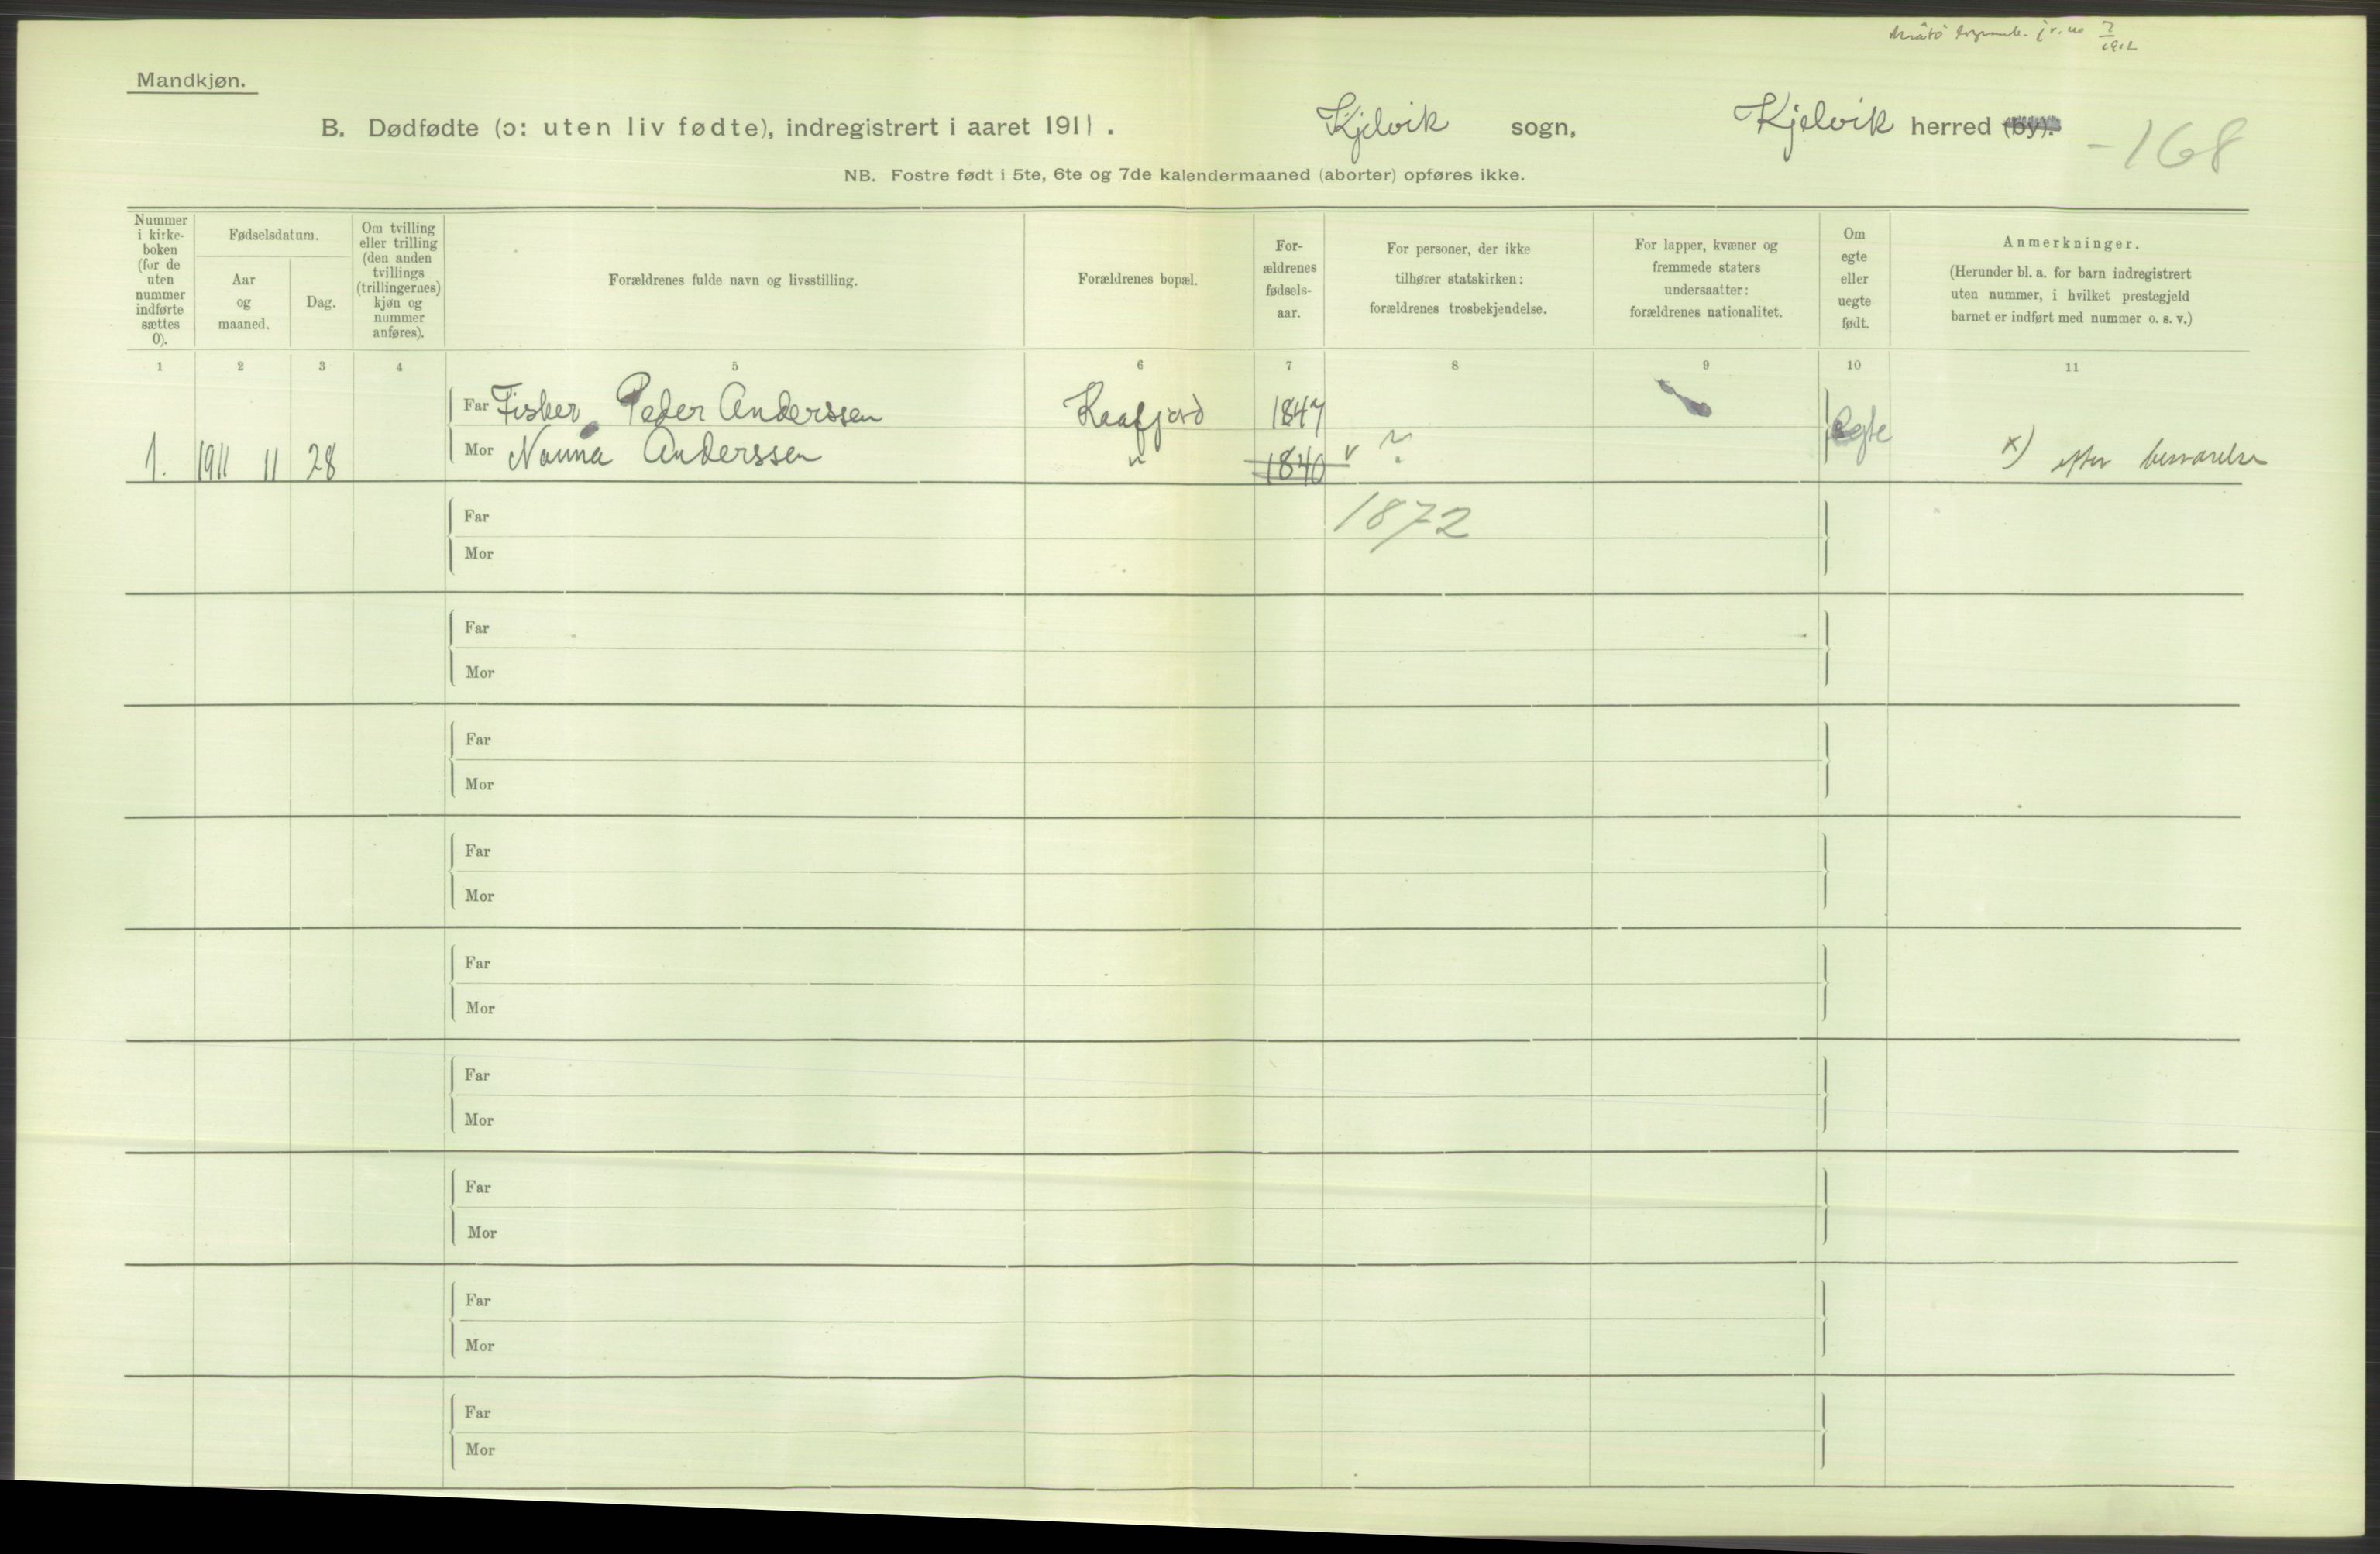 jr. no 7/1912
Mandkjøn.
B. Dødfødte (ɔ: uten liv fødte), indregistrert i aaret 1911. Kjelvik sogn, Kjelvik herred (by). -168
NB. Fostre født i 5te, 6te og 7de kalendermaaned (aborter) opføres ikke.
Nummer i kirke-boken (for de uten nummer indførte sættes 0).
Fødselsdatum.
Aar og maaned.
Dag.
Om tvilling eller trilling (den anden tvillings (trillingernes) kjøn og nummer anføres).
Forældrenes fulde navn og livsstilling.
Forældrenes bopæl.
For-ældrenes fødsels-aar.
For personer, der ikke tilhører statskirken: forældrenes trosbekjendelse.
For lapper, kvæner og fremmede staters undersaatter: forældrenes nationalitet.
Om egte eller uegte født.
Anmerkninger.
(Herunder bl. a. for barn indregistrert uten nummer, i hvilket prestegjeld barnet er indført med nummer o. s. v.)
1 2 3 4 5 6 7 8 9 10 11
Far Fisker Peder Anderssen Kaafjord 1847 Egte
1. 1911 11 28 Mor Nanna Anderssen " 1840 v ? x) efter besvarelse
Far 1872
Mor
Far
Mor
Far
Mor
Far
Mor
Far
Mor
Far
Mor
Far
Mor
Far
Mor
Far
Mor